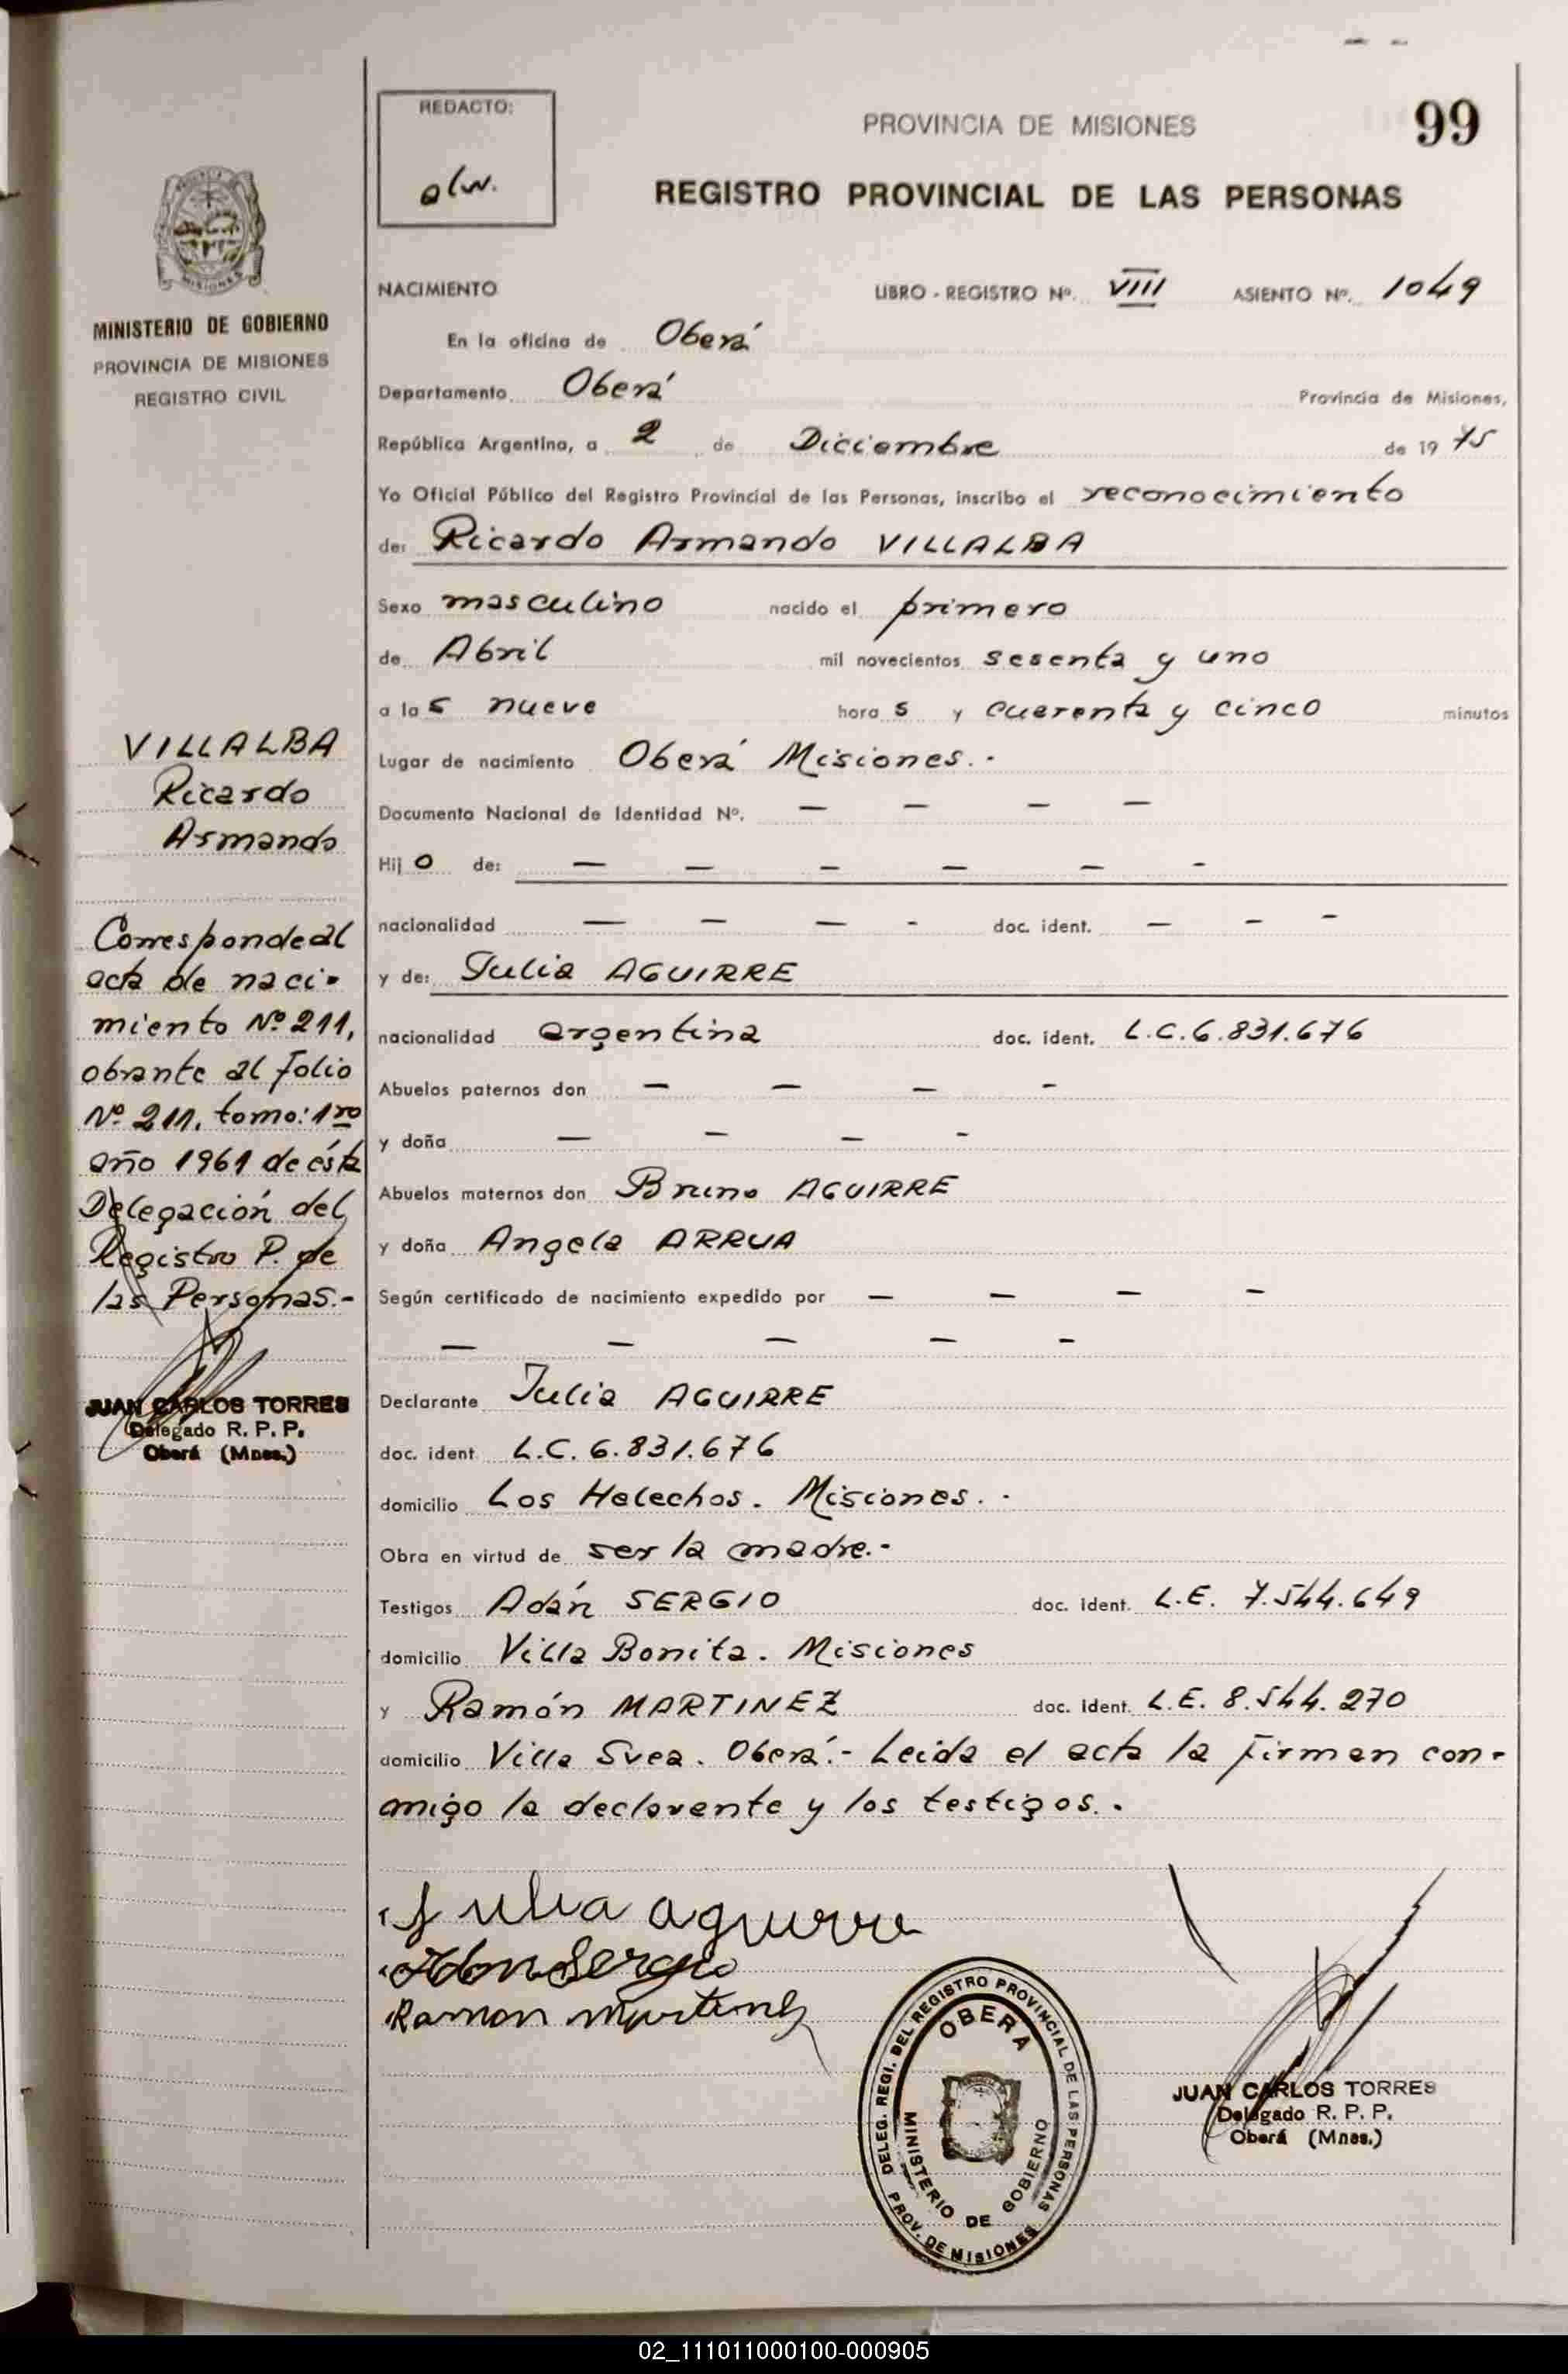 99
REDACTO:
alw.
PROVINCIA DE MISIONES
REGISTRO PROVINCIAL DE LAS PERSONAS
MINISTERIO DE GOBIERNO
PROVINCIA DE MISIONES
REGISTRO CIVIL
NACIMIENTO LIBRO - REGISTRO Nº. VIII ASIENTO Nº. 1049
En la oficina de Oberá
Departamento Oberá Provincia de Misiones,
República Argentina, a 2 de Diciembre de 1975
Yo Oficial Público del Registro Provincial de las Personas, inscribo el reconocimiento
de: Ricardo Armando VILLALBA
Sexo masculino nacido el primero
de Abril mil novecientos sesenta y uno
a las nueve horas y cuarenta y cinco minutos
Lugar de nacimiento Oberá Misiones.-
Documento Nacional de Identidad Nº. — — — —
Hijo de: — — — — — -
nacionalidad — — — - doc. ident. — - -
y de: Julia AGUIRRE
nacionalidad argentina doc. ident. L.C.6.831.676
Abuelos paternos don — — — -
y doña — — — -
Abuelos maternos don Bruno AGUIRRE
y doña Angela ARRUA
Según certificado de nacimiento expedido por — — — -
— — — — -
Declarante Julia AGUIRRE
doc. ident. L.C. 6.831.676
domicilio Los Helechos. Misiones.-
Obra en virtud de ser la madre.-
Testigos Adán SERGIO doc. ident. L.E. 7.544.649
domicilio Villa Bonita. Misiones
y Ramón MARTINEZ doc. ident. L.E. 8.544.270
domicilio Villa Svea. Oberá.- Leida el acta la firman con-
migo la declarante y los testigos.-
VILLALBA
Ricardo
Armando
Corresponde al
acta de naci-
miento Nº 211,
obrante al folio
Nº 211. tomo: 1ro
año 1961 de ésta
Delegación del
Registro P. de
las Personas.-
JUAN CARLOS TORRES
Delegado R. P. P.
Oberá (Mnes.)
Julia aguirre
Adan Sergio
Ramon Martinez
DELEG. REGI. DEL REGISTRO PROVINCIAL DE LAS PERSONAS
OBERA
MINISTERIO DE GOBIERNO
PROV. DE MISIONES
JUAN CARLOS TORRES
Delegado R. P. P.
Oberá (Mnes.)
02_111011000100-000905